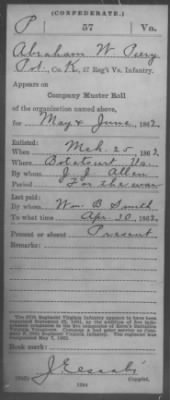 (CONFEDERATE.)
P 57 Va.
Abraham W Peery
Pvt., Co. K, 57 Reg't Va. Infantry.
Appears on
Company Muster Roll
of the organization named above,
for May & June, 1862.
Enlisted:
When Mch. 25, 1862.
Where Botetourt Va.
By whom J. J. Allen
Period For the war
Last paid:
By whom Wm. B Smith
To what time Apr. 30, 1862.
Present or absent Present
Remarks:
Book mark:
Copyist.